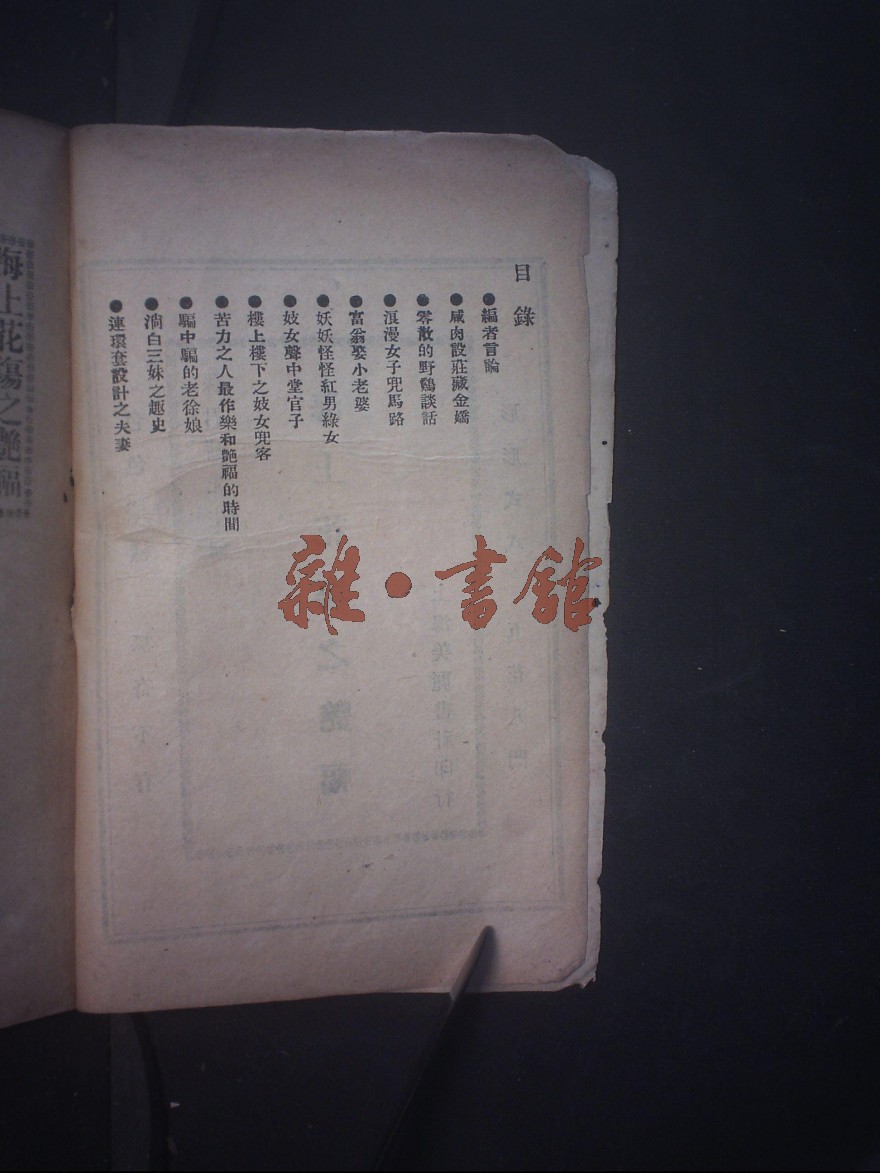 目錄
●編者言論
●咸肉設莊藏金嬌
●零散的野鷄談話
●浪漫女子兜馬路
●富翁娶小老婆
●妖妖怪怪紅男綠女
●妓女聲中堂官子
●樓上樓下之妓女兜客
●苦力之人最作樂和艶福的時間
●騙中騙的老徐娘
●淌白三妹之趣史
●連環套設計之夫妻
海上花蕩之艶福
雜·書館